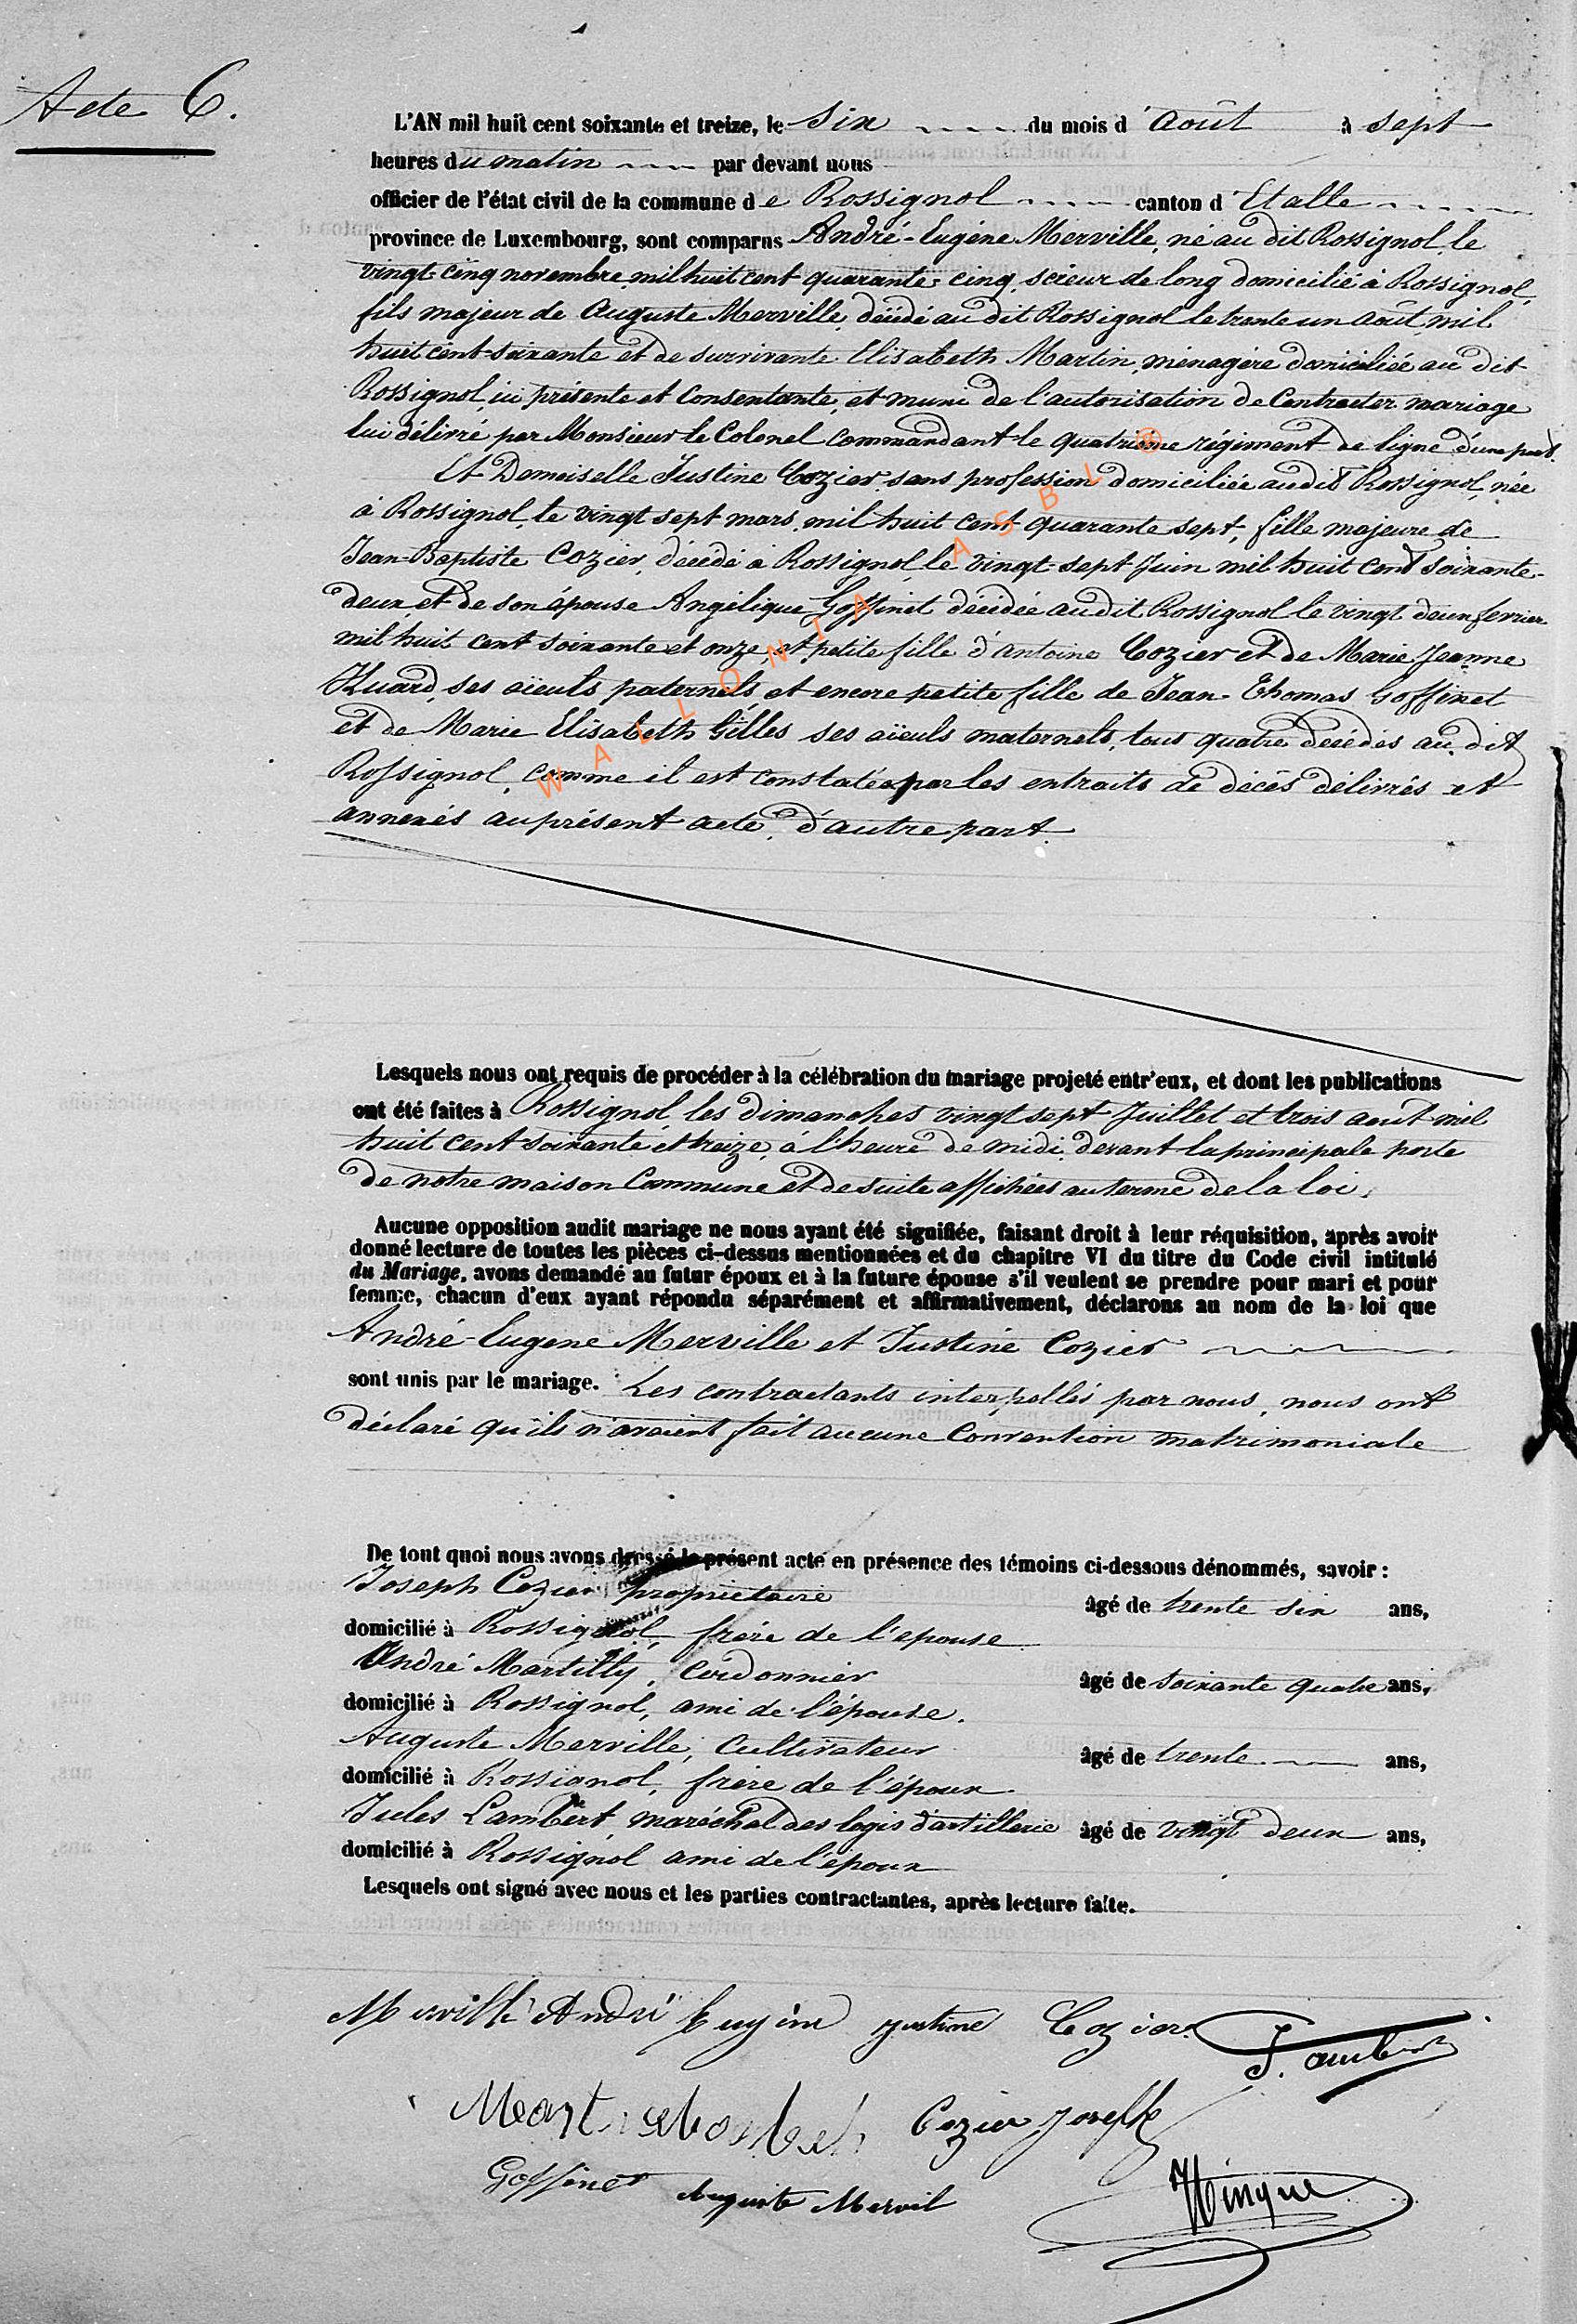 Acte 6.
L'AN mil huit cent soixante et treize, le Six du mois d'Août à sept
heures du matin par devant nous
officier de l'état civil de la commune de Rossignol canton d'Etalle
province de Luxembourg, sont comparus André-Eugène Merville, né au dit Rossignol, le
vingt-cinq novembre mil huit cent quarante-cinq, scieur de long domicilié à Rossignol,
fils majeur de Auguste Merville, décédé au dit Rossignol le trente un août mil
huit cent-soixante et de survivante Elisabeth Martin, ménagère domiciliée au dit
Rossignol, ici présente et Consentante, et muni de l'autorisation de Contracter mariage
lui délivré par Monsieur le Colonel commandant le quatrième régiment de ligne d'une part.
Et Demoiselle Justine Cozier, sans profession domiciliée audit Rossignol, née
à Rossignol, le vingt sept mars, mil huit cent quarante sept, fille majeure de
Jean-Baptiste Cozier, décédé à Rossignol, le vingt-sept Juin mil huit cent soixante-
deux et de son épouse Angélique Goffinet décédée audit Rossignol le vingt deux fevrier
mil huit cent soixante et onze, et petite fille d'antoine Cozier et de Marie Jeanne
Huard, ses aïeuls paternels, et encore petite fille de Jean-Thomas Goffinet
et de Marie Elisabeth Gilles ses aïeuls maternels, tous quatre décédés au dit
Rossignol, comme il est constaté par les extraits de décès délivrés et
annexés au présent acte, d'autre part.
WALLONIA ASBL ®
Lesquels nous ont requis de procéder à la célébration du mariage projeté entr'eux, et dont les publications
ont été faites à Rossignol, les dimanches vingt sept Juillet et trois août mil
huit cent soixante et treize, à l'heure de midi, devant la principale porte
de notre maison Commune et de suite affichées au terme de la loi.
Aucune opposition audit mariage ne nous ayant été signifiée, faisant droit à leur réquisition, après avoir
donné lecture de toutes les pièces ci-dessus mentionnées et du chapitre VI du titre du Code civil intitulé
du Mariage, avons demandé au futur époux et à la future épouse s'il veulent se prendre pour mari et pour
femme, chacun d'eux ayant répondu séparément et affirmativement, déclarons au nom de la loi que
André-Eugene Merville et Justine Cozier
sont unis par le mariage. Les contractants interpellés par nous, nous ont
déclaré qu'ils n'avaient fait aucune Convention matrimoniale
De tout quoi nous avons dressé le présent acte en présence des témoins ci-dessous dénommés, savoir :
Joseph Cozier propriétaire âgé de trente six ans,
domicilié à Rossignol, frère de l'epouse
André Martilly, Cordonnier âgé de soixante quatre ans,
domicilié à Rossignol, ami de l'épouse.
Auguste Merville, Cultivateur âgé de trente ans,
domicilié à Rossignol, frère de l'époux
Jules Lambert, maréchal des logis d'artillerie âgé de vingt deux ans,
domicilié à Rossignol ami de l'époux
Lesquels ont signé avec nous et les parties contractantes, après lecture faite.
Merville André Eugène justine Cozier J. Lambert
Cozier Joseph
Goffinet Auguste Mervil Hinque